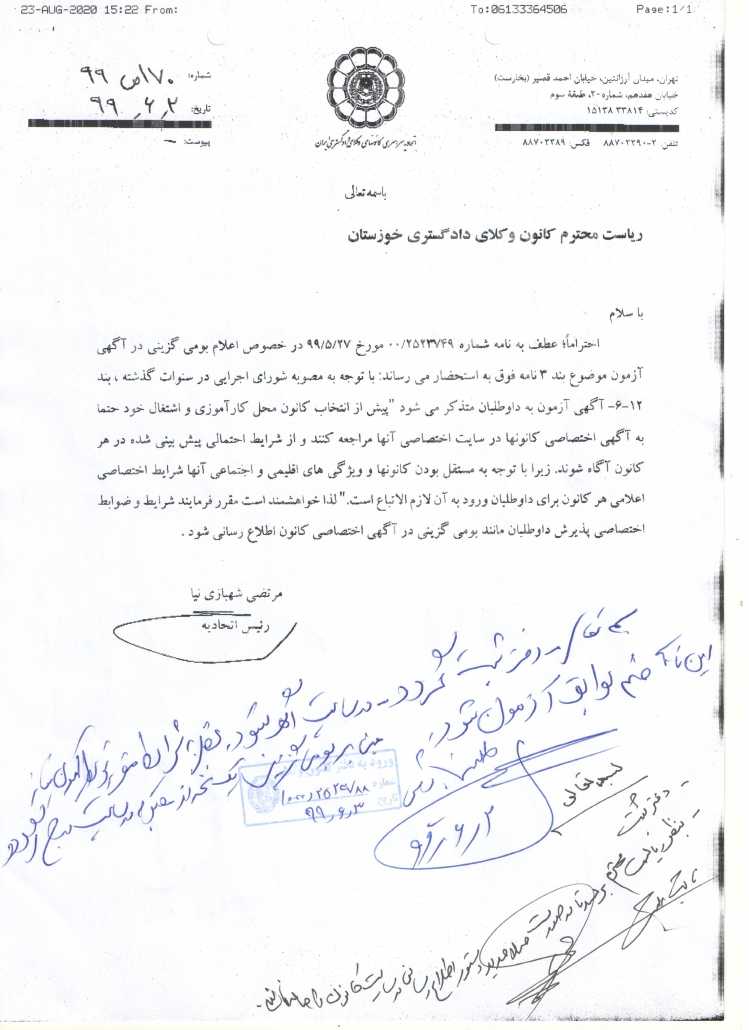 23-AUG-2020 15:22 From: To:06133364506 Page:1/1
شماره: ۱۷۰/ص ۹۹
تاریخ: ۹۹٫۶٫۲
پیوست: —
اتحادیه سراسری کانونهای وکلای دادگستری ایران
تهران، میدان آرژانتین، خیابان احمد قصیر (بخارست)
خیابان هفدهم، شماره ۲۰، طبقه سوم
کدپستی: ۳۳۸۱۴ ۱۵۱۳۸
تلفن: ۲-۸۸۷۰۲۳۹۰ فکس: ۸۸۷۰۲۳۸۹
باسمه تعالی
ریاست محترم کانون وکلای دادگستری خوزستان
با سلام
احتراماً؛ عطف به نامه شماره ۰۰/۲۵۲۳۷۴۹ مورخ ۹۹/۵/۲۷ در خصوص اعلام بومی گزینی در آگهی
آزمون موضوع بند ۳ نامه فوق به استحضار می رساند: با توجه به مصوبه شورای اجرایی در سنوات گذشته ، بند
۱۲-۶- آگهی آزمون به داوطلبان متذکر می شود "پیش از انتخاب کانون محل کارآموزی و اشتغال خود حتما
به آگهی اختصاصی کانونها در سایت اختصاصی آنها مراجعه کنند و از شرایط احتمالی پیش بینی شده در هر
کانون آگاه شوند. زیرا با توجه به مستقل بودن کانونها و ویژگی های اقلیمی و اجتماعی آنها شرایط اختصاصی
اعلامی هر کانون برای داوطلبان ورود به آن لازم الاتباع است." لذا خواهشمند است مقرر فرمایند شرایط و ضوابط
اختصاصی پذیرش داوطلبان مانند بومی گزینی در آگهی اختصاصی کانون اطلاع رسانی شود .
مرتضی شهبازی نیا
رئیس اتحادیه
دفتر ثبت گردد - در سایت
این نامه ضم سوابق آزمون شود
ورود به دفتر کانون
شماره
تاریخ ۹۹٫۶٫۳
بسمه تعالی
- دفتر ثبت
دستور اطلاع رسانی در سایت کانون را